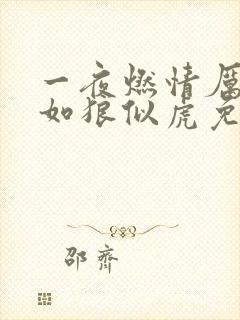 一夜燃情厲
如狼似虎免
邵齊